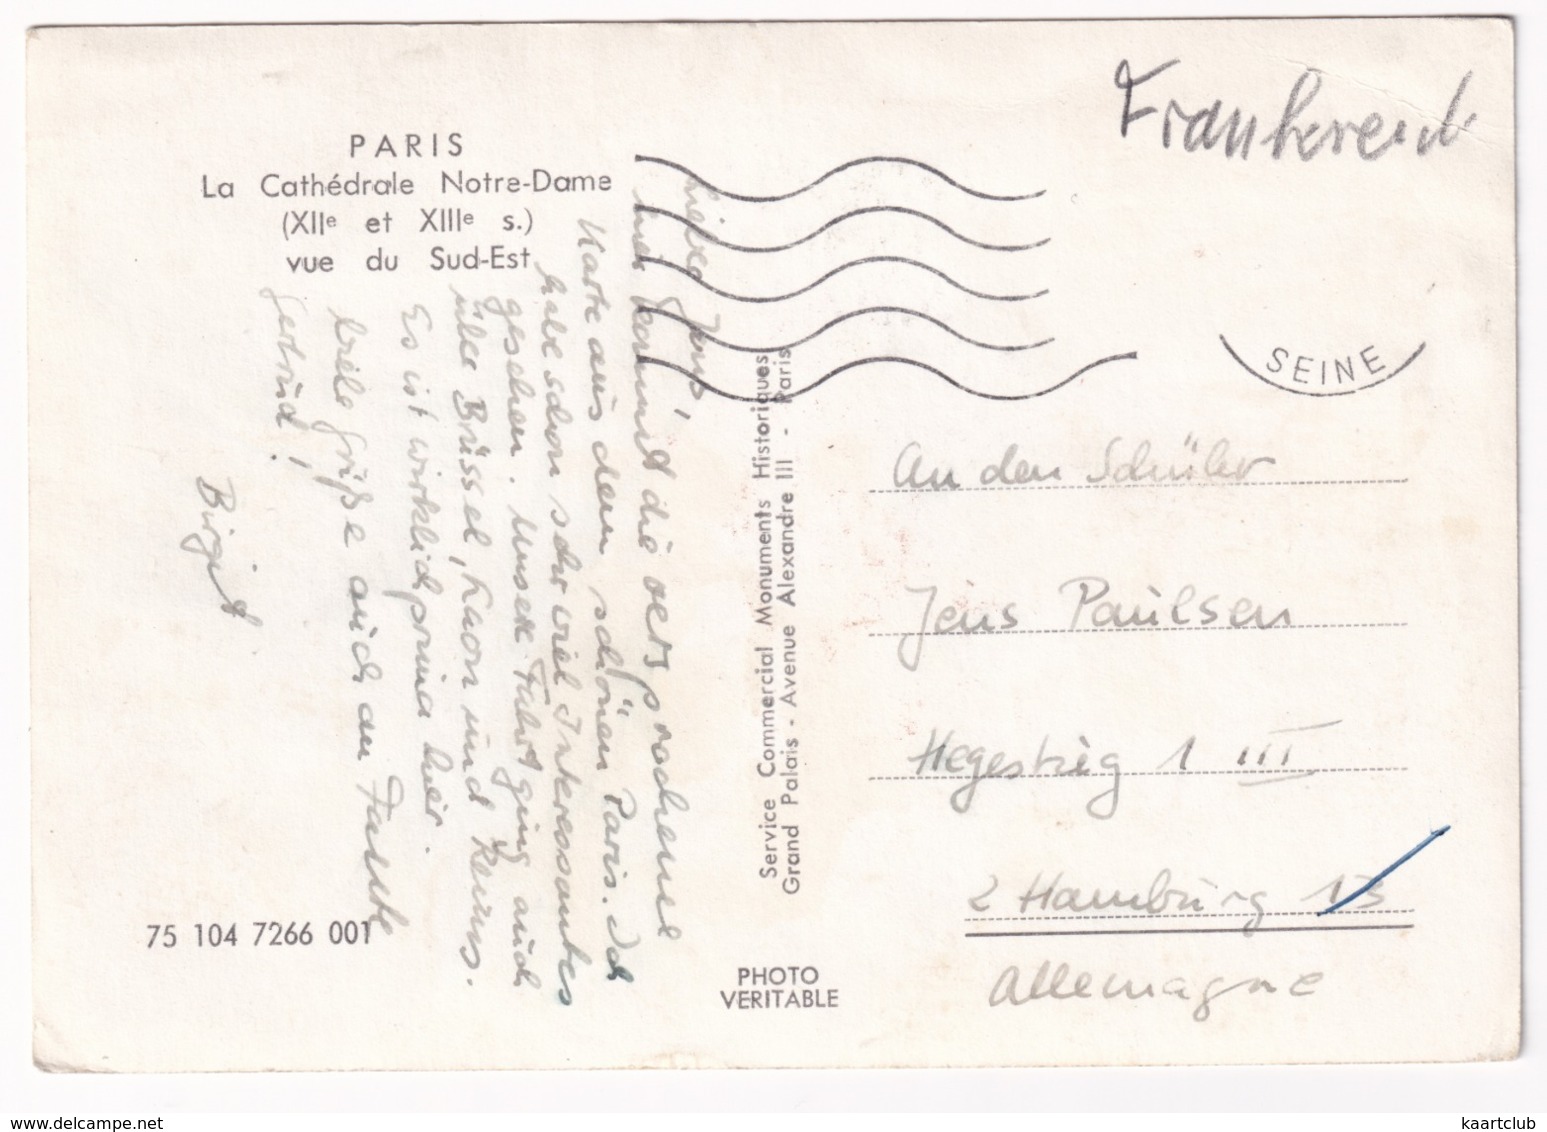 Frankreich
PARIS
La Cathédrale Notre-Dame
(XIIe et XIIIe s.)
vue du Sud-Est
Lieber Jens!
hier kommt die versprochene
Karte aus dem schönen Paris. Ich
habe schon sehr viel Interessantes
gesehen. Unsere Fahrt ging auch
über Brüssel, Laon und Reims.
Es ist wirklich prima hier.
Viele Grüße auch an Fau
Gertrud!
Birgit
75 104 7266 001
Service Commercial Monuments Historiques
Grand Palais - Avenue Alexandre III - Paris
PHOTO
VERITABLE
SEINE
An den Schüler
Jens Paulsen
Hegestieg 1 III
2 Hamburg 13
Allemagne
www.delcampe.net
kaartclub